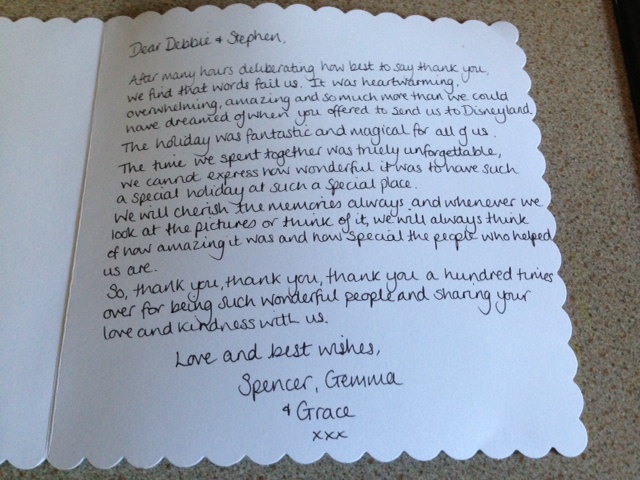 Dear Debbie & Stephen,
After many hours deliberating how best to say thank you,
we find that words fail us. It was heartwarming,
overwhelming, amazing and so much more than we could
have dreamed of when you offered to send us to Disneyland.
The holiday was fantastic and magical for all of us.
The time we spent together was truely unforgettable,
we cannot express how wonderful it was to have such
a special holiday at such a special place.
We will cherish the memories always and whenever we
look at the pictures or think of it, we will always think
of how amazing it was and how special the people who helped
us are.
So, thank you, thank you, thank you a hundred times
over for being such wonderful people and sharing your
love and kindness with us.
Love and best wishes,
Spencer, Gemma
& Grace
xxx